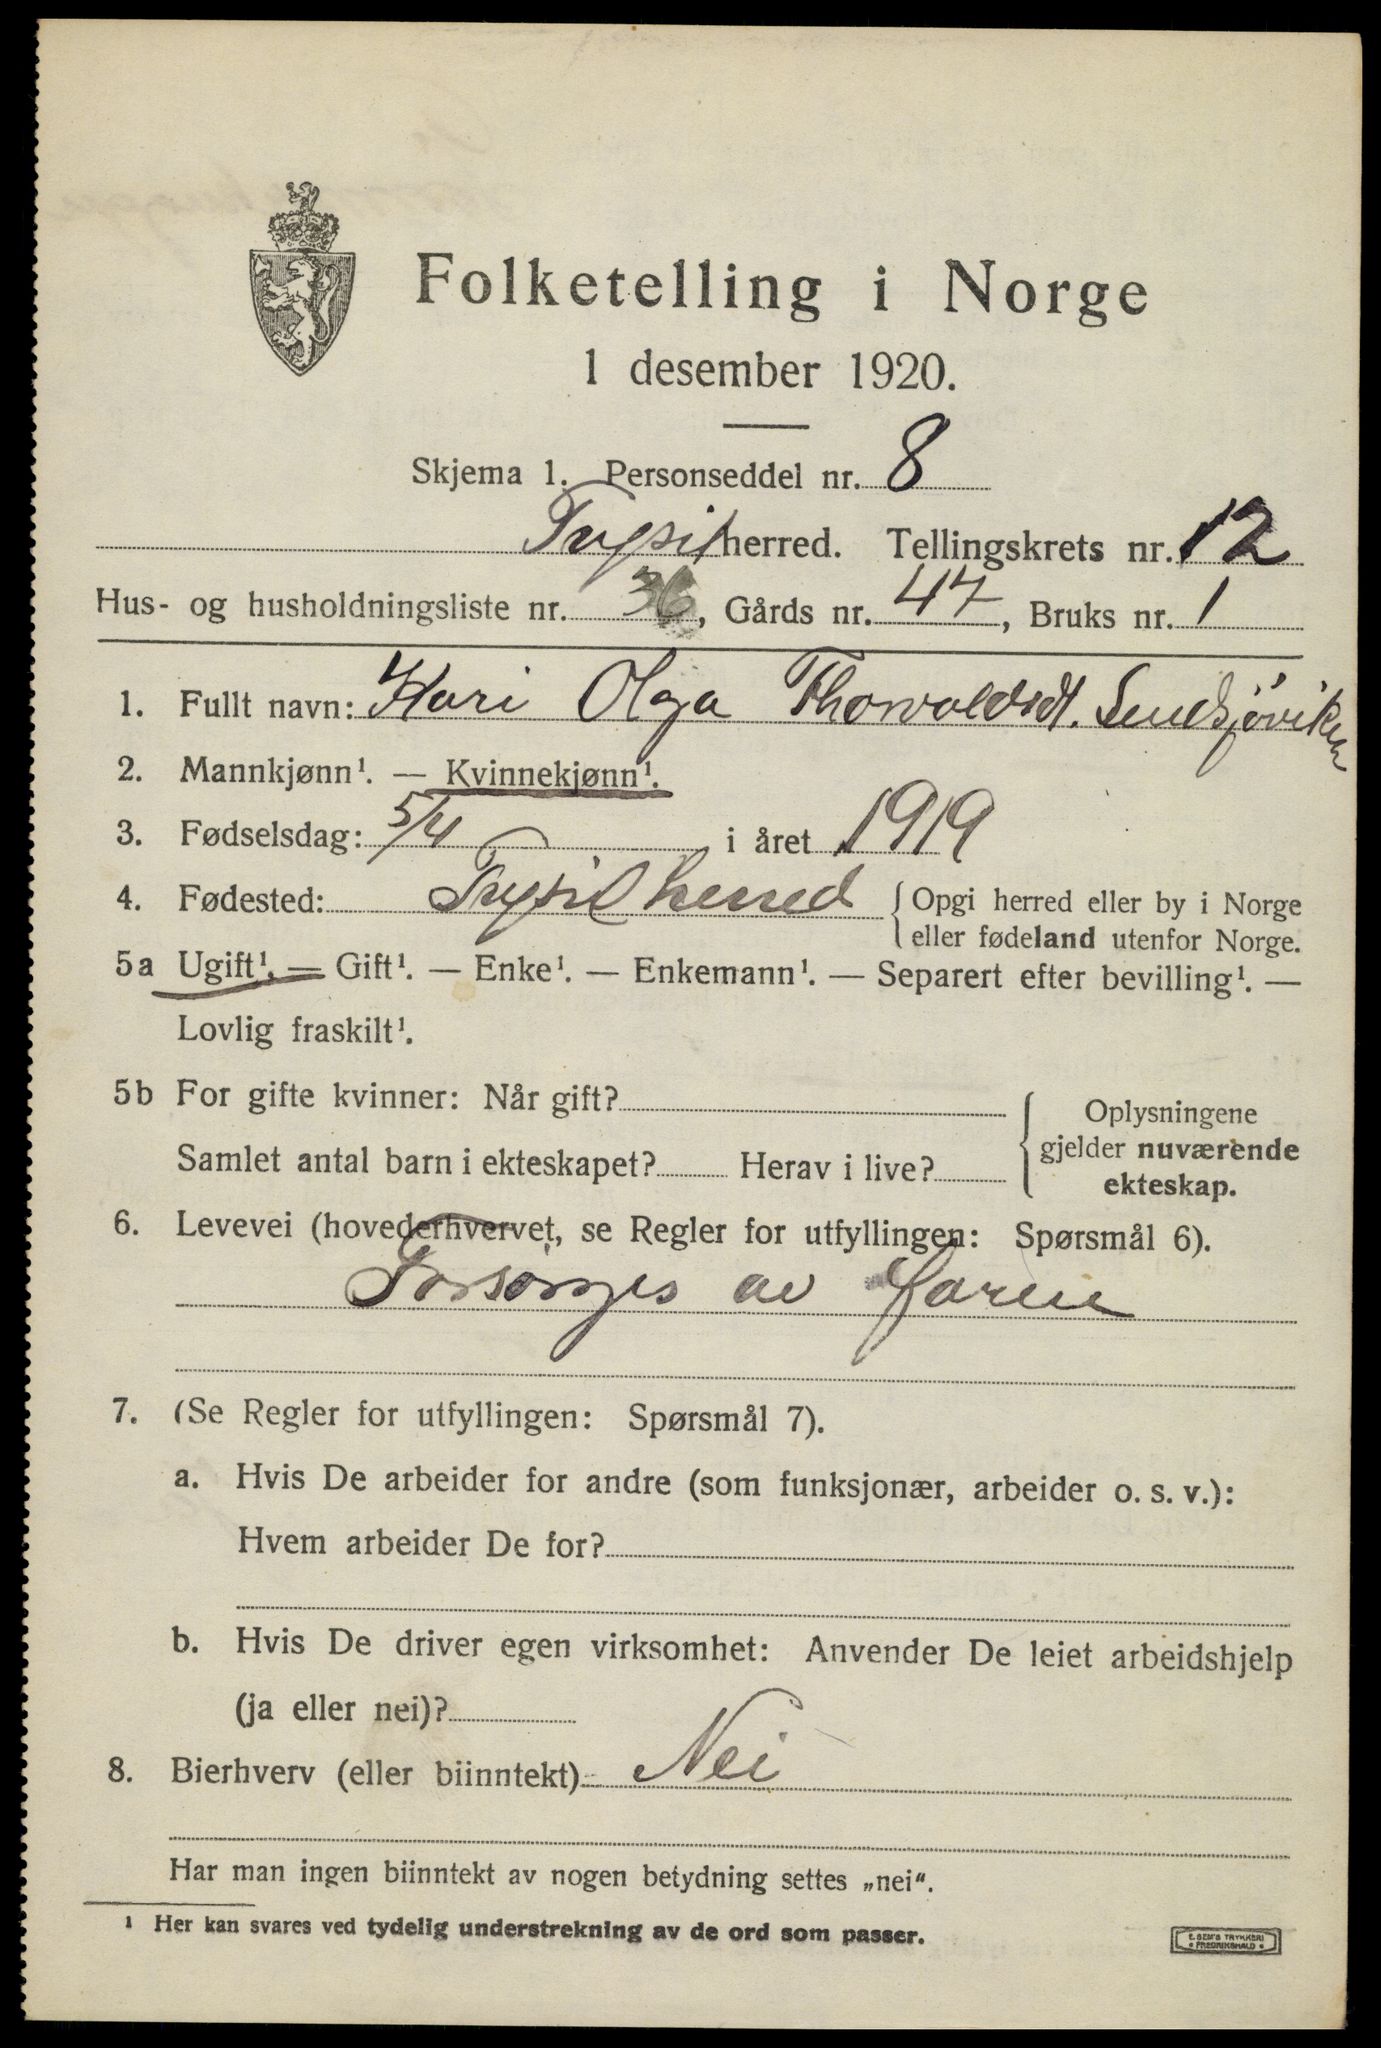 Folketelling i Norge
1 desember 1920.
Skjema 1. Personseddel nr. 8
Trysil herred. Tellingskrets nr. 12
Hus- og husholdningsliste nr. 36, Gårds nr. 47, Bruks nr. 1
1. Fullt navn: Kari Olga Thorvaldsdt. Sendsjøviken
2. Mannkjønn¹. — Kvinnekjønn¹.
3. Fødselsdag: 5/4 i året 1919
4. Fødested: Trysil herred { Opgi herred eller by i Norge
eller fødeland utenfor Norge.
5a Ugift¹. — Gift¹. — Enke¹. — Enkemann¹. — Separert efter bevilling¹. —
Lovlig fraskilt¹.
5b For gifte kvinner: Når gift?
Samlet antal barn i ekteskapet? Herav i live?
{ Oplysningene
gjelder nuværende
ekteskap.
6. Levevei (hovederhvervet, se Regler for utfyllingen: Spørsmål 6).
Forsørges av faren
7. (Se Regler for utfyllingen: Spørsmål 7).
a. Hvis De arbeider for andre (som funksjonær, arbeider o. s. v.):
Hvem arbeider De for?
b. Hvis De driver egen virksomhet: Anvender De leiet arbeidshjelp
(ja eller nei)?
8. Bierhverv (eller biinntekt) Nei
Har man ingen biinntekt av nogen betydning settes „nei“.
¹ Her kan svares ved tydelig understrekning av de ord som passer.
E. SEM'S TRYKKERI
• FREDRIKSHALD •